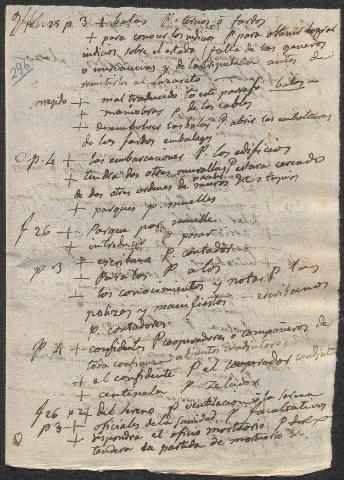 fol. 25 p. 3 + balas p. tercios ó fardos
+ para conocer los indicios p. para obtener
indicios sobre el estado falta de los generos
o mercancias y de la antes de
remitirlos al lazareto
295
corregido + mal traducido todo este parrafo balas
+ maniobras p. de los cables
+ desemvolver las balas p. abrir las embolturas
de los fardos embalages
p. 4 + las embarcaciones p. los edificios
+ tendra dos otras murallas p. estara cercado
de dos otros ordenes de muros &c o tapias
+ parques p. muelles
f 26 + Parque por muelle
+ introducir p. posar
p. 3 + escribano p. contador
+ Para los p. a los
+ los conocimientos y notas p. las
polizas y manifiestos - escribanos
p. contadores
p. 4 + confidentes p. cooperadores o compañeros de
+ el confidente p. el cooperador coadjutor
+ centinela p. zelador
f 26 p 2 + del sereno p. ventilacion
p. 3 + oficiales de la sanidad p. facultativos
+ dispondra el oficio mortuorio p.
tendera la partida de mortuorio &c